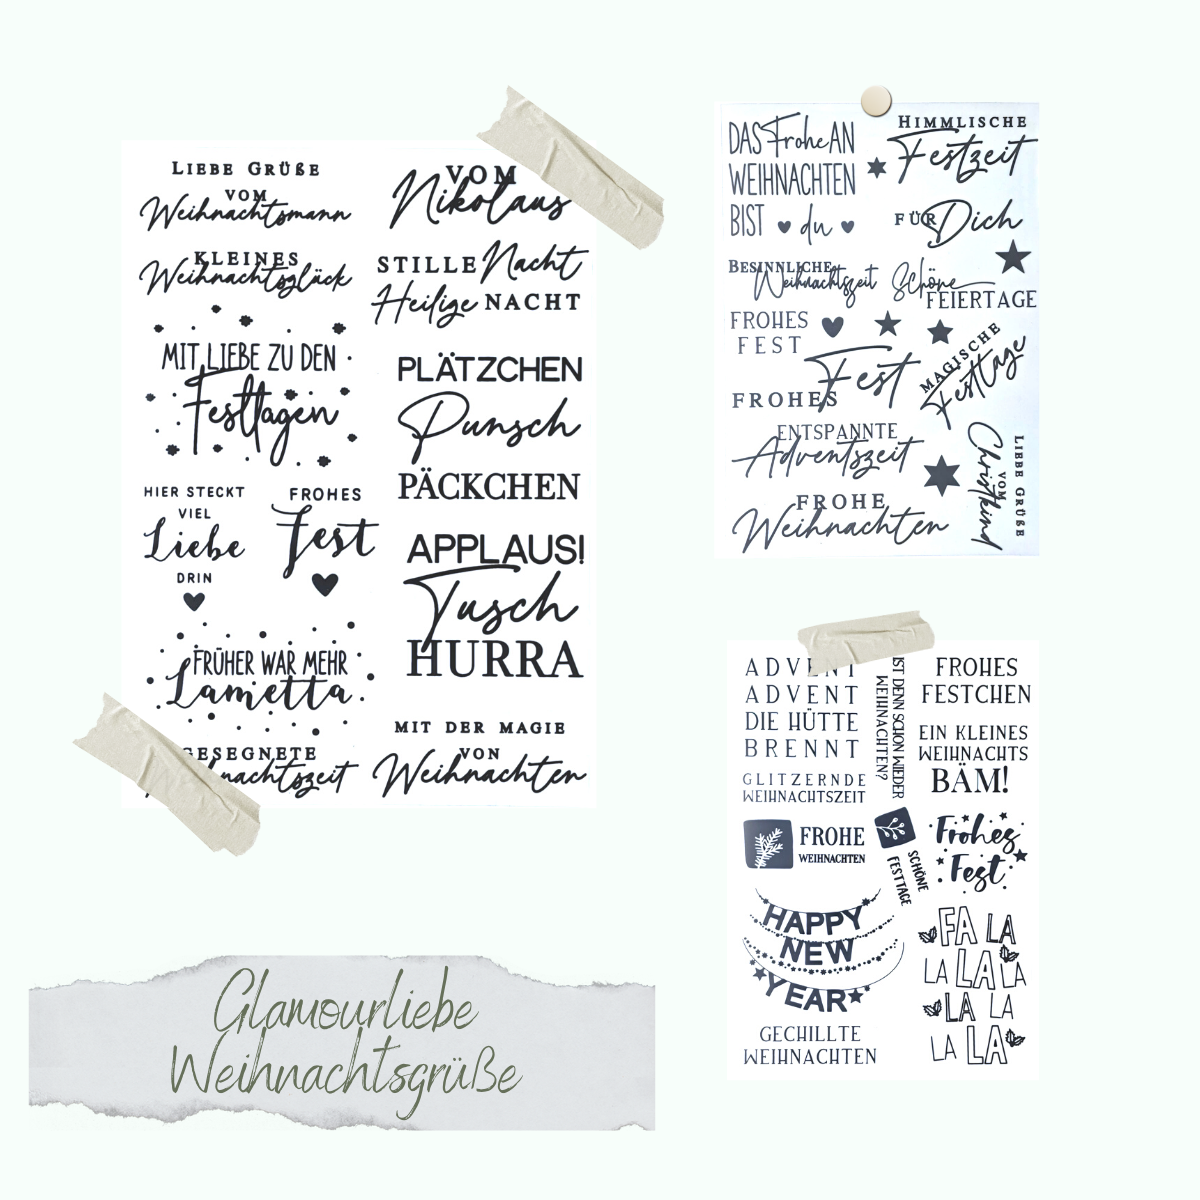 LIEBE GRÜßE
VOM
Weihnachtsmann
KLEINES
Weihnachtsglück
MIT LIEBE ZU DEN
Festtagen
HIER STECKT
VIEL
Liebe
DRIN
FROHES
Fest
FRÜHER WAR MEHR
Lametta
GESEGNETE
VOM
Nikolaus
STILLE Nacht
Heilige NACHT
PLÄTZCHEN
Punsch
PÄCKCHEN
APPLAUS!
Tusch
HURRA
MIT DER MAGIE
VON
Weihnachten
DAS Frohe AN
WEIHNACHTEN
BIST du
HIMMLISCHE
Festzeit
FÜR Dich
BESINNLICHE
Weihnachtszeit
Schöne
FEIERTAGE
FROHES
FEST
FROHES Fest
MAGISCHE
Festtage
ENTSPANNTE
Adventszeit
FROHE
Weihnachten
LIEBE GRÜßE
VOM
Christkind
ADVENT
ADVENT
DIE HÜTTE
BRENNT
IST DENN SCHON WIEDER
WEIHNACHTEN?
FROHES
FESTCHEN
EIN KLEINES
WEIHNACHTS
BÄM!
GLITZERNDE
WEIHNACHTSZEIT
FROHE
WEIHNACHTEN
SCHÖNE
FESTTAGE
Frohes
Fest
HAPPY
NEW
YEAR
FA LA
LA LA LA
LA LA
LA LA
GECHILLTE
WEIHNACHTEN
Glamourliebe
Weihnachtsgrüße